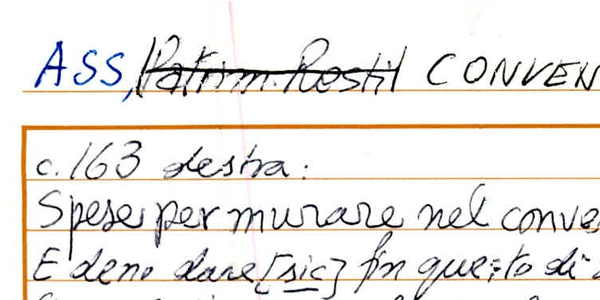 ASS, Patrim. Rostil CONVEN
c. 163 destra:
Spese per murare nel conve
E deno dare [sic] fin questo di